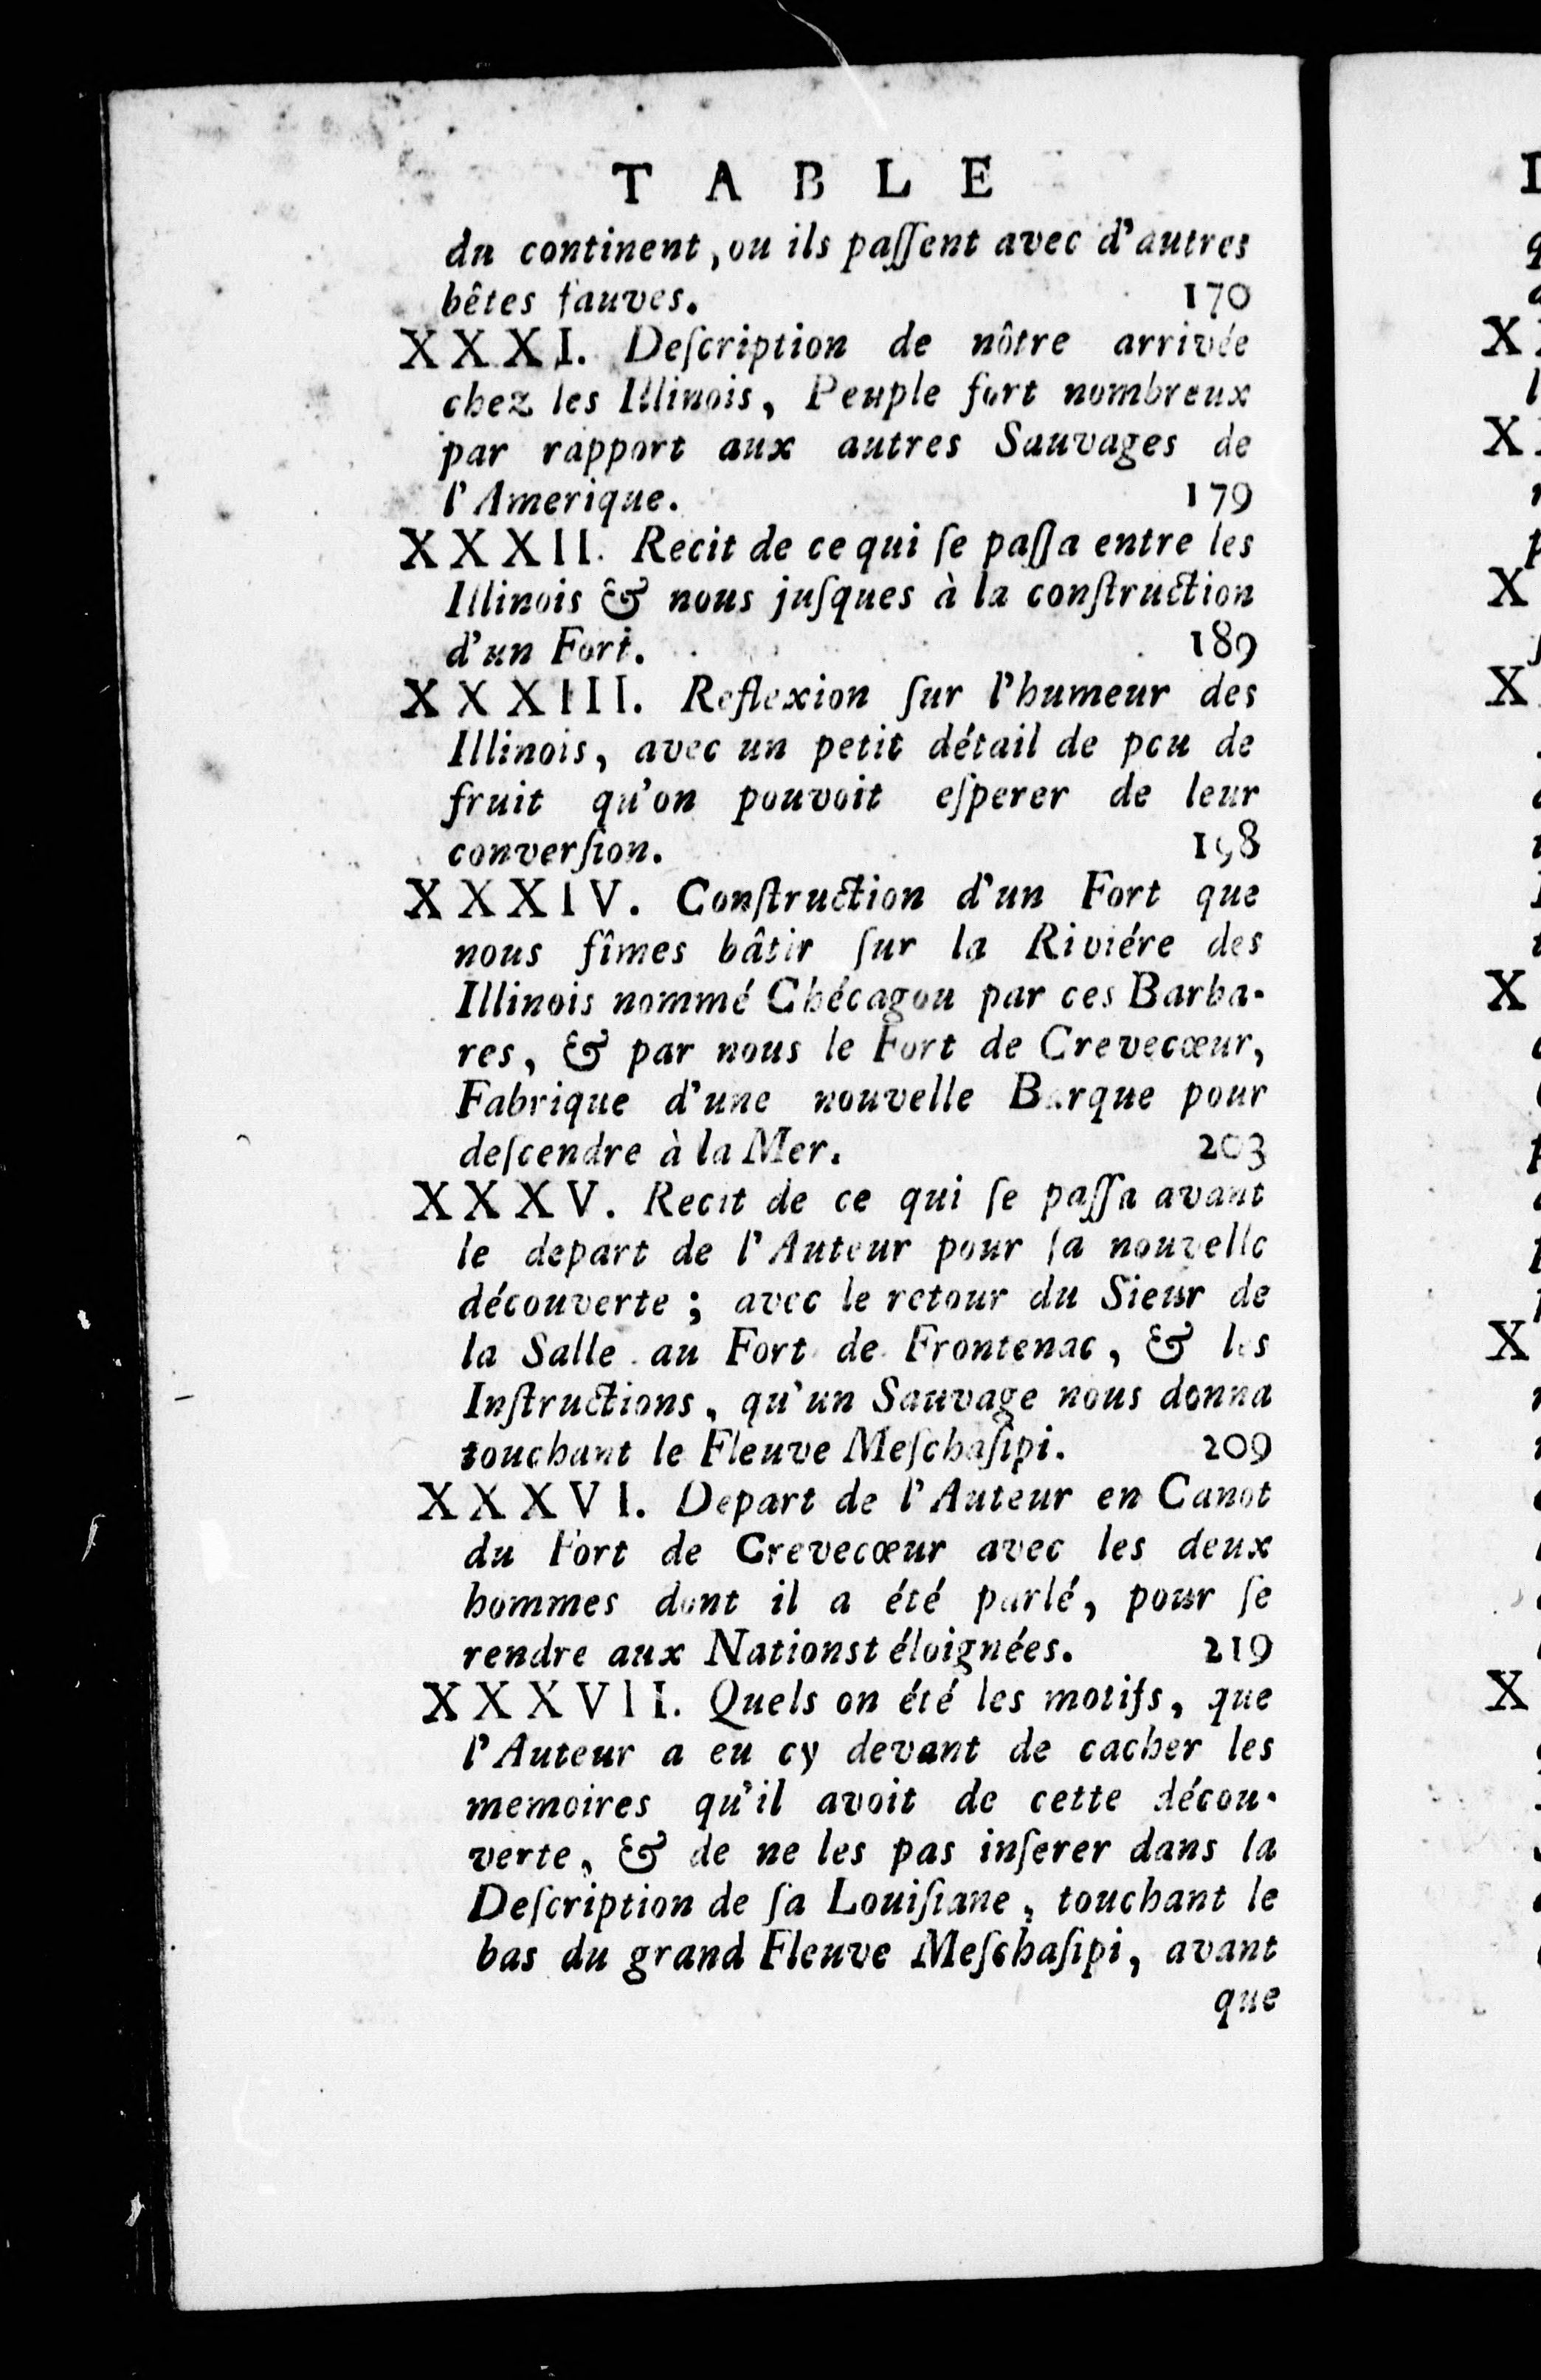 TABLE
du continent, ou ils paſſent avec d'autres
bêtes fauves. 170
XXXI. Deſcription de nôtre arrivée
chez les Illinois, Peuple fort nombreux
par rapport aux autres Sauvages de
l'Amerique. 179
XXXII. Recit de ce qui ſe paſſa entre les
Illinois & nous juſques à la conſtruction
d'un Fort. 189
XXXIII. Reflexion ſur l'humeur des
Illinois, avec un petit détail de peu de
fruit qu'on pouvoit eſperer de leur
converſion. 198
XXXIV. Conſtruction d'un Fort que
nous fîmes bâtir ſur la Riviére des
Illinois nommé Chécagou par ces Barba-
res, & par nous le Fort de Crevecœur,
Fabrique d'une nouvelle Barque pour
deſcendre à la Mer. 203
XXXV. Recit de ce qui ſe paſſa avant
le depart de l'Auteur pour ſa nouvelle
découverte; avec le retour du Sieur de
la Salle au Fort de Frontenac, & les
Inſtructions, qu'un Sauvage nous donna
touchant le Fleuve Meſchaſipi. 209
XXXVI. Depart de l'Auteur en Canot
du Fort de Crevecœur avec les deux
hommes dont il a été parlé, pour ſe
rendre aux Nationst éloignées. 219
XXXVII. Quels on été les motifs, que
l'Auteur a eu cy devant de cacher les
memoires qu'il avoit de cette décou-
verte, & de ne les pas inſerer dans la
Deſcription de ſa Louiſiane, touchant le
bas du grand Fleuve Meſchaſipi, avant
que